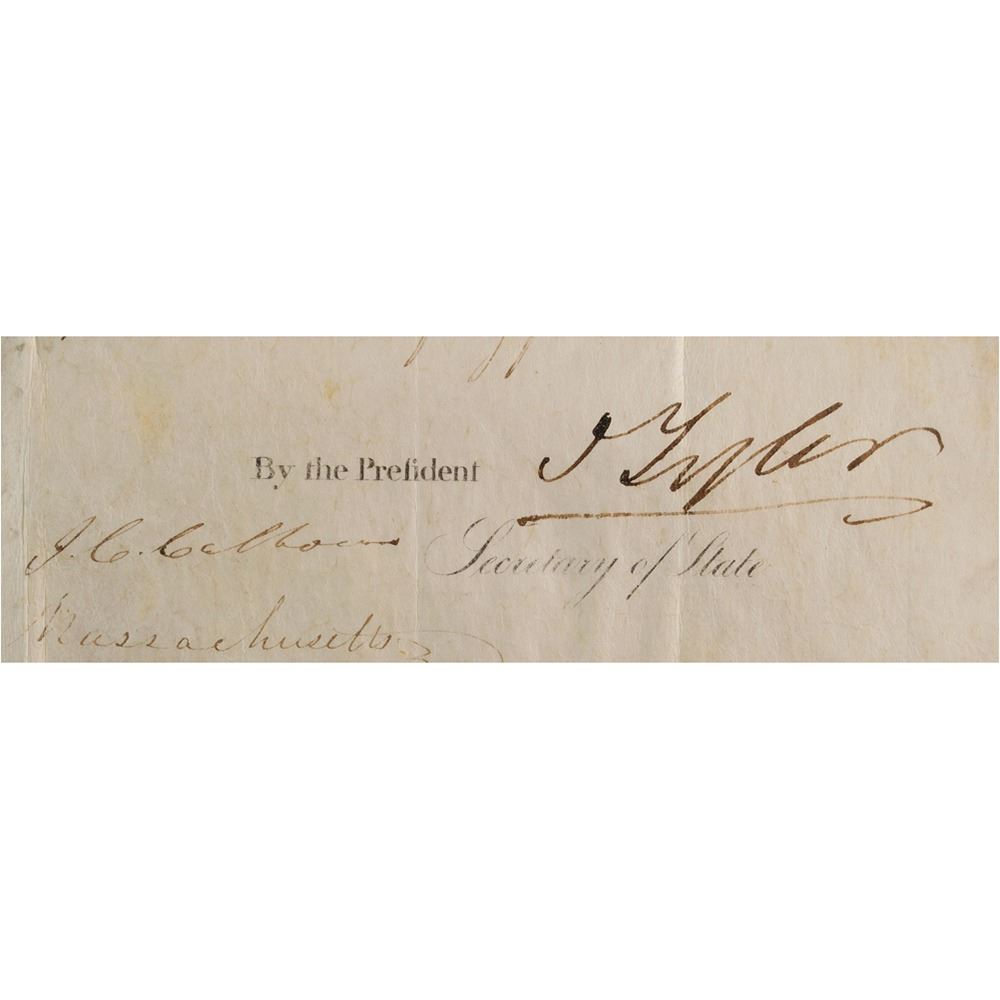 By the Preſident J Tyler
J. C. Calhoun Secretary of State
Massachusetts